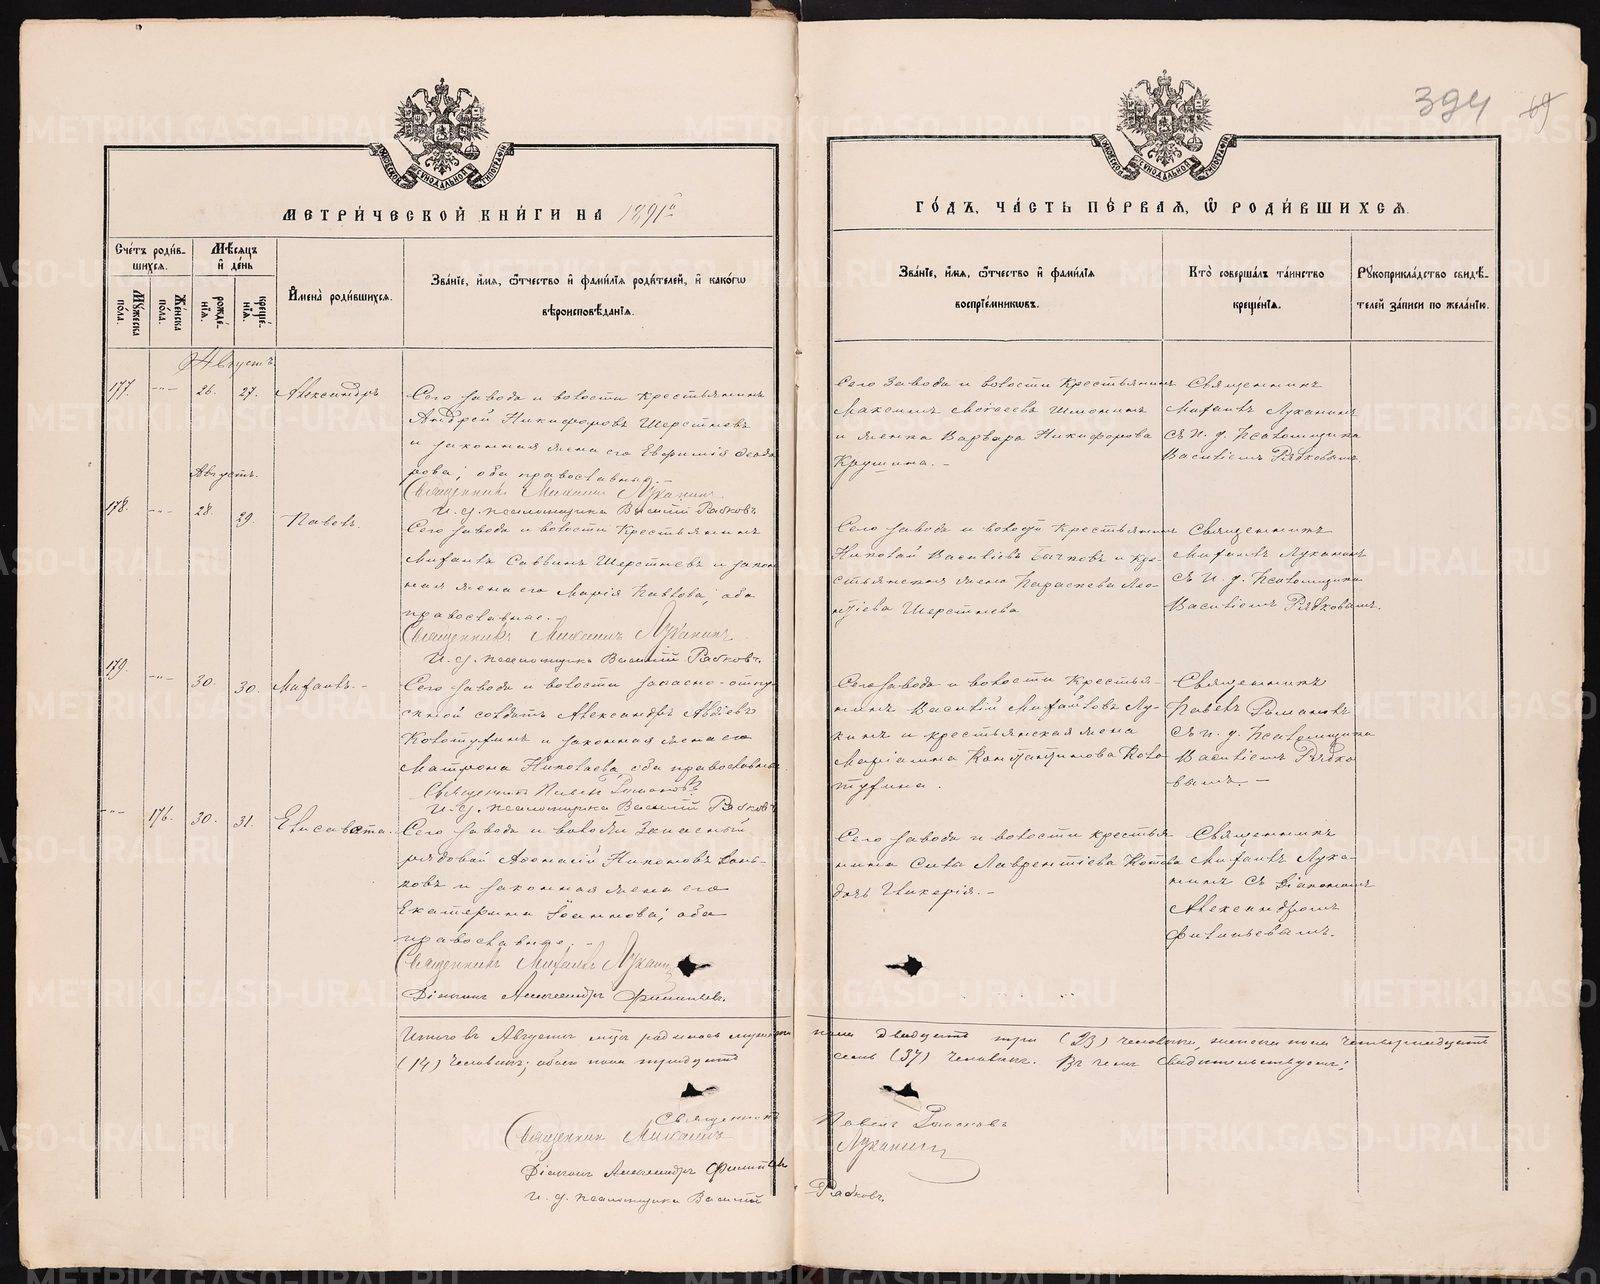 394
МЕТРИ́ЧЕСКОЙ КНИ́ГИ НА 1891й
ГО́ДЪ, ЧА́СТЬ ПЕ́РВАЯ, Ѿ РОДИ́ВШИХСѦ.
Сче́тъ роди́в-
шихсѧ.
Мꙋжеска по́ла.
Же́нска по́ла.
Мѣ́сѧцъ
и҆ де́нь
рожде́-
нїѧ.
креще́-
нїѧ.
И҆мена̀ роди́вшихсѧ.
Зва́нїе, и҆́мѧ, ѿтчество и҆ фами́лїѧ роди́телей, и҆ како́гѡ
вѣроисповѣ́данїѧ.
Зва́нїе, и҆́мѧ, ѿтчество и҆ фами́лїѧ
воспрїе́мникѡвъ.
Кто̀ соверша́лъ та́инство
креще́нїѧ.
Рꙋкоприкла́дство свидѣ́-
телей за́писи по жела́нїю.
Августъ
177.
26.
27.
Александръ
Сего завода и волости крестьянинъ
Андрей Никифоровъ Шерстневъ
и законная жена его Евфимія Феодо
рова; оба православные.
Священникъ Михаилъ Луканинъ
И. д. псаломщика Василій Рябковъ
Сего завода и волости крестьянинъ
Максимъ Моѵсеевъ
и женка Варвара Никифорова
Священникъ
Михаилъ Луканинъ
съ и. д. псаломщика
Василіемъ Рябковымъ.
Августъ.
178.
28.
29.
Павелъ.
Сего завода и волости крестьянинъ
Михаилъ Саввинъ Шерстневъ и закон
ная жена его Марія Павлова; оба
православные.
Священникъ Михаилъ Луканинъ
И. д. псаломщика Василій Рябковъ.
Сего завода и волости крестьянинъ
Николай Василіевъ и кре-
стьянская жена Параскева Лео-
нтіева Шерстнева
Священникъ
Михаилъ Луканинъ
съ и. д. псаломщика
Василіемъ Рябковымъ.
179.
30.
30.
Михаилъ.
Сего завода и волости запасно-отпу
скной солдатъ Александръ Авдіевъ
Колотугинъ и законная жена его
Матрона Николаева, оба православные
Священникъ Павелъ
И. д. псаломщика Василій Рябковъ
Сего завода и волости крестья-
нинъ Василій Михайловъ Лу-
кинъ и крестьянская жена
Маріамна Константинова Коло
тугина.
Священникъ
Павелъ
съ и. д. псаломщика
Василіемъ Рябко
вымъ.
176.
30.
31.
Елисавета.
Сего завода и волости запасный
рядовой Афонасій Никоновъ Вань-
ковъ и законная жена его
Екатерина Іоаннова; оба
православные.
Священникъ Михаилъ Луканинъ
Діаконъ Александръ Филипьевъ.
Сего завода и волости крестья
нина Силы Лаврентіева Котова
дочь Гликерія.
Священникъ
Михаилъ Лука-
нинъ съ діакономъ
Александромъ
Филипьевымъ.
Итого въ Августѣ мцѣ родилось мужеска пола двадцать три (23) человѣка, женска пола четырнадцать
(14) человѣкъ; обоего пола тридцать семь (37) человѣкъ. Въ чемъ свидѣтельствуемъ:
Священникъ Павелъ
Священникъ Михаилъ Луканинъ
Діаконъ Александръ Филипьевъ
И. д. псаломщика Василій Рябковъ.
METRIKI.GASO-URAL.RU